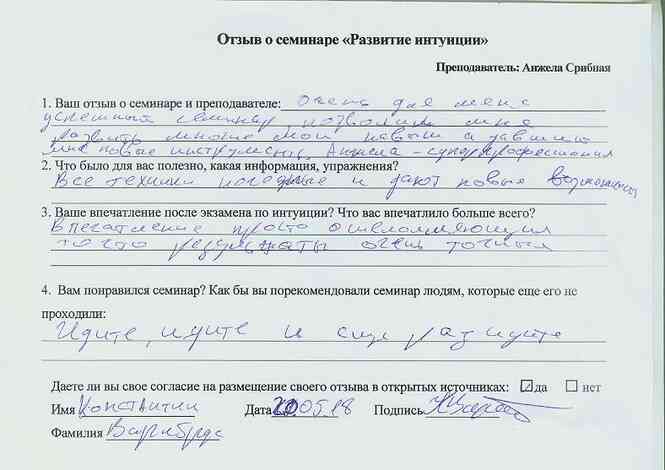 Отзыв о семинаре «Развитие интуиции»
Преподаватель: Анжела Срибная
1. Ваш отзыв о семинаре и преподавателе: Очень для меня
успешный семинар, позволил мне
развить многие мои навыки и
мне новые инструменты, Анжела - супер профессионал
2. Что было для вас полезно, какая информация, упражнения?
Все техники и дают новые возможности
3. Ваше впечатление после экзамена по интуиции? Что вас впечатлило больше всего?
Впечатление просто ошеломляющия
то что результаты очень точные
4. Вам понравился семинар? Как бы вы порекомендовали семинар людям, которые еще его не
проходили:
Идите, идите и еще раз идите
Даете ли вы свое согласие на размещение своего отзыва в открытых источниках: да нет
Имя Константин Дата 20.05.18 Подпись
Фамилия